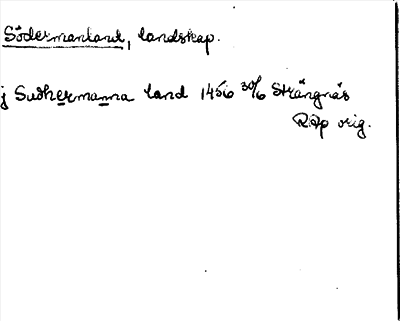 Södermanland, landskap.
j Sudhermanna land 1456 30/6 Strängnäs
RAp orig.